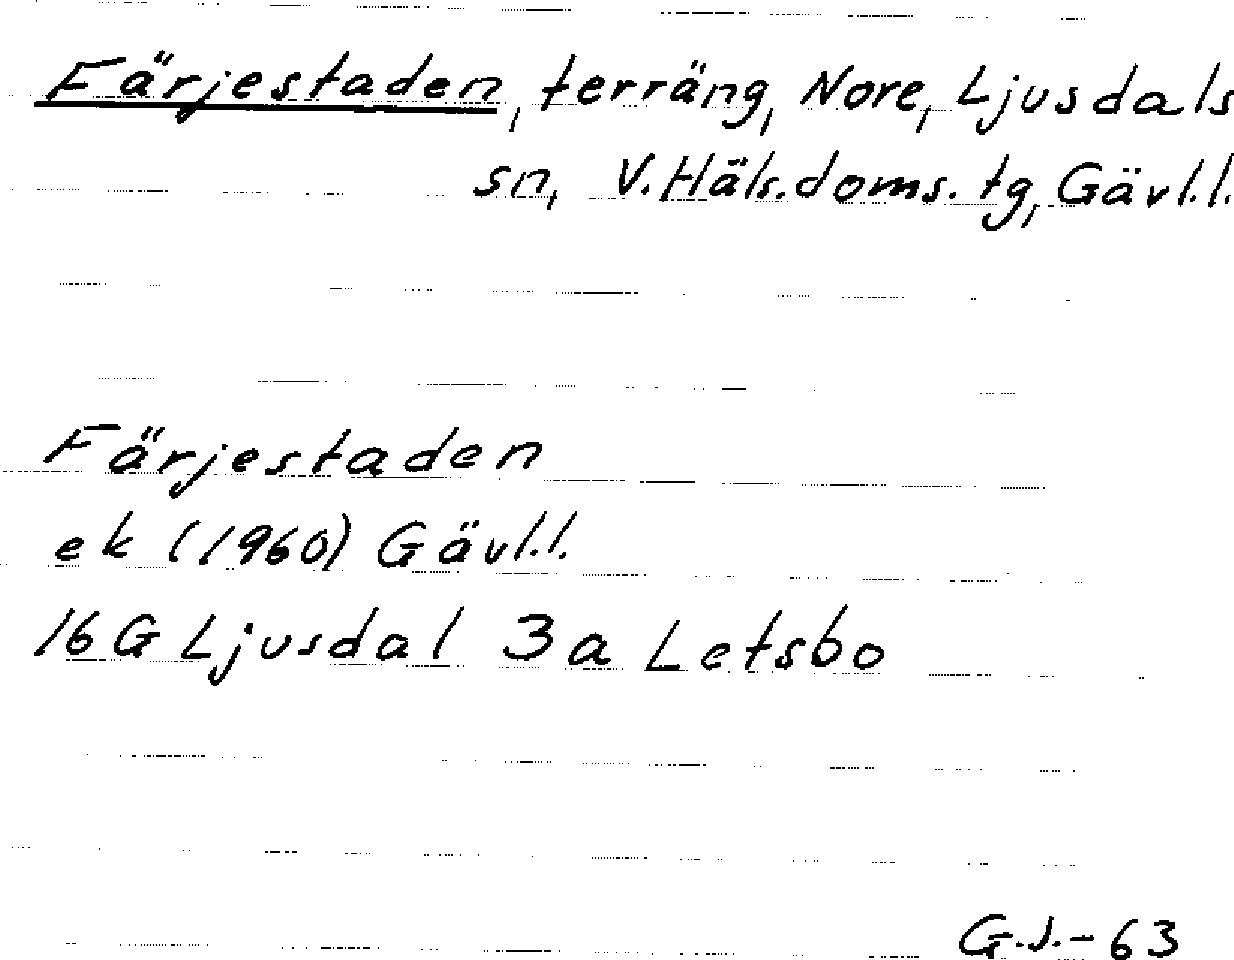 Färjestaden, terräng, Nore, Ljusdals
sn, V. Häls. doms. tg, Gävl.l.
Färjestaden
ek (1960) Gävl.l.
16G Ljusdal 3a Letsbo
G.J.-63